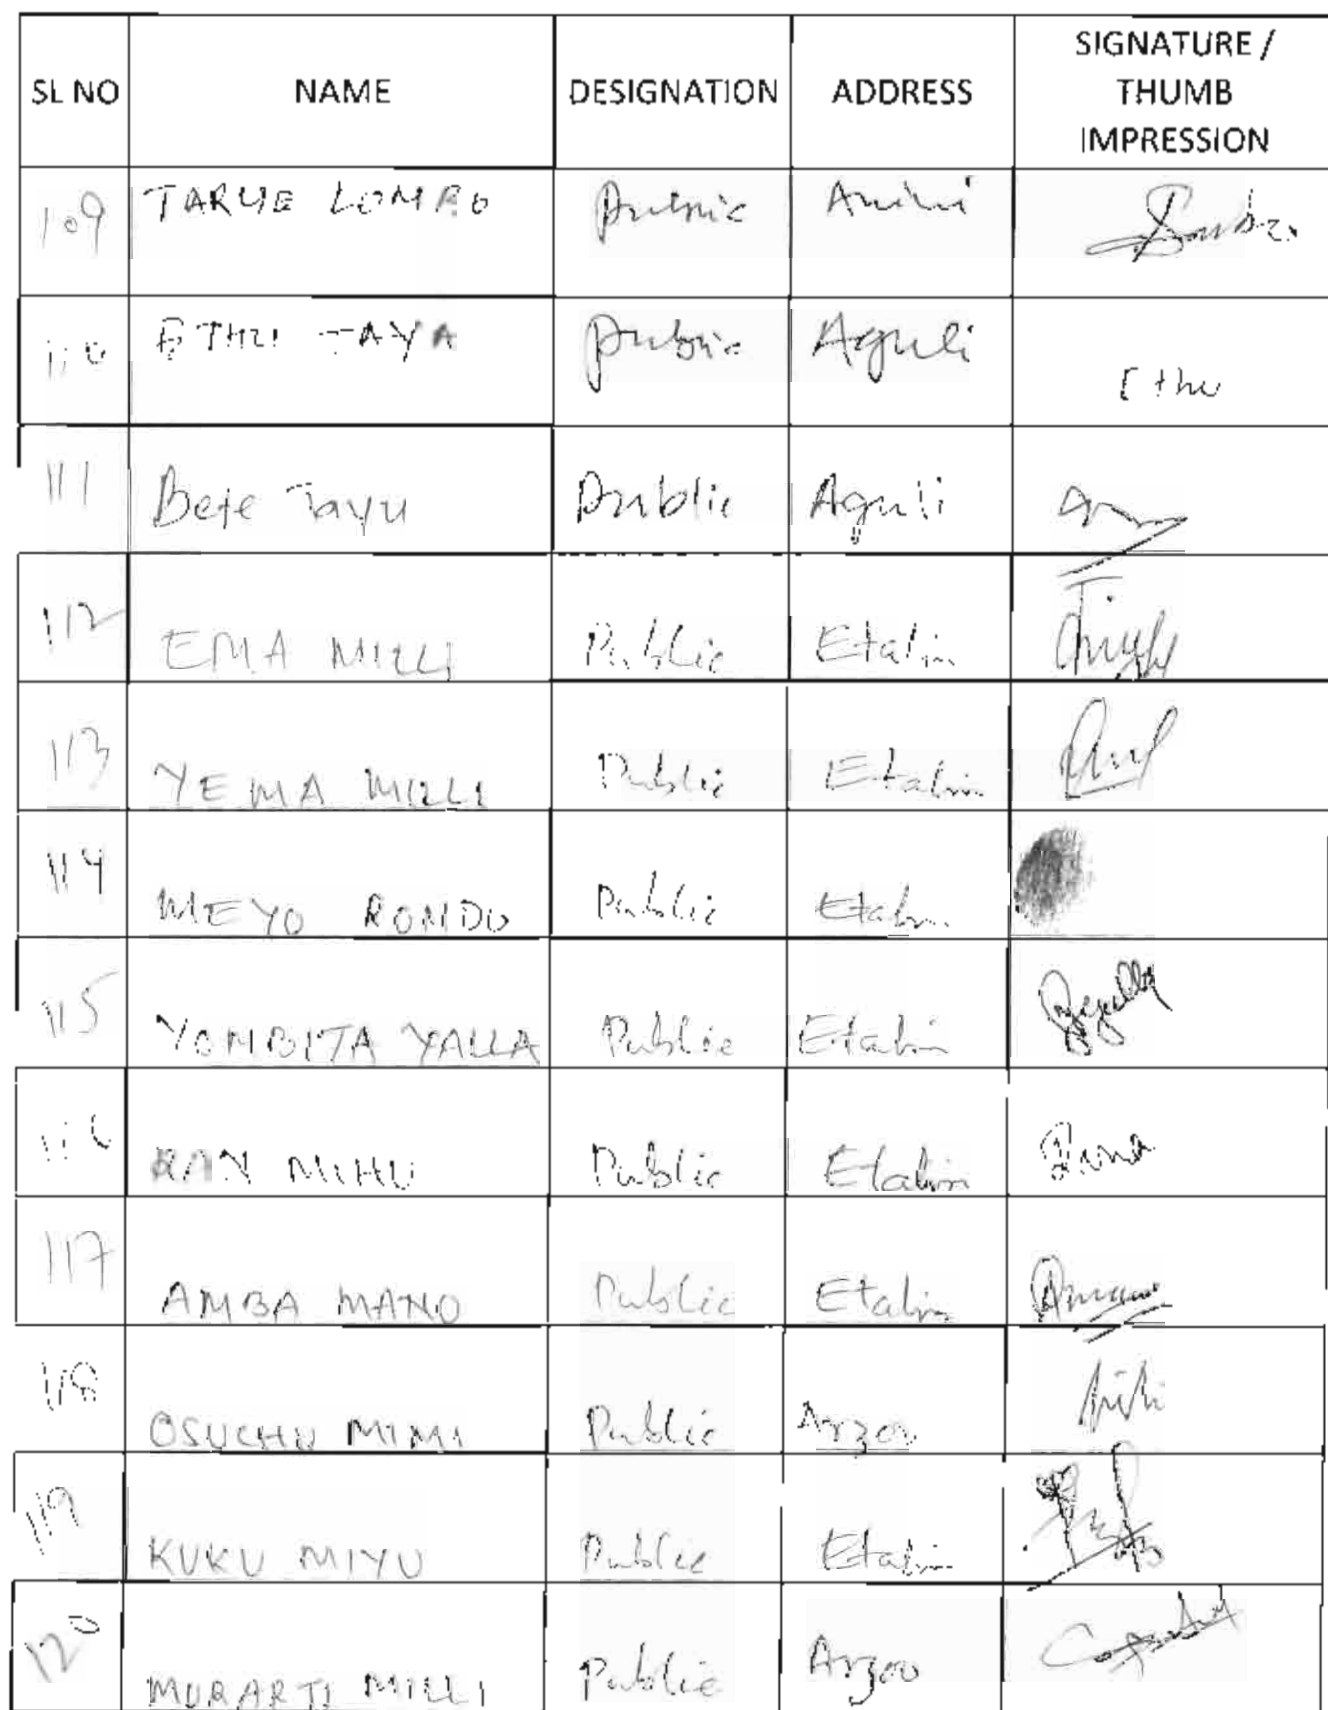 SL NO NAME DESIGNATION ADDRESS SIGNATURE / THUMB IMPRESSION
109 Public
110 TAYA Public Aguli Ethu
111 Bete Tayu Public Aguli
112 EMA MILLI Public Etalin
113 YEMA MILLI Public Etalin
114 MEYO RONDO Public Etalin
115 YOMBITA YALLA Public Etalin
116 RAN MIHU Public Etalin
117 AMBA MANO Public Etalin
118 OSUCHU MIMI Public Arzoo
119 KUKU MIYU Public Etalin
120 MURARTI MILLI Public Arzoo